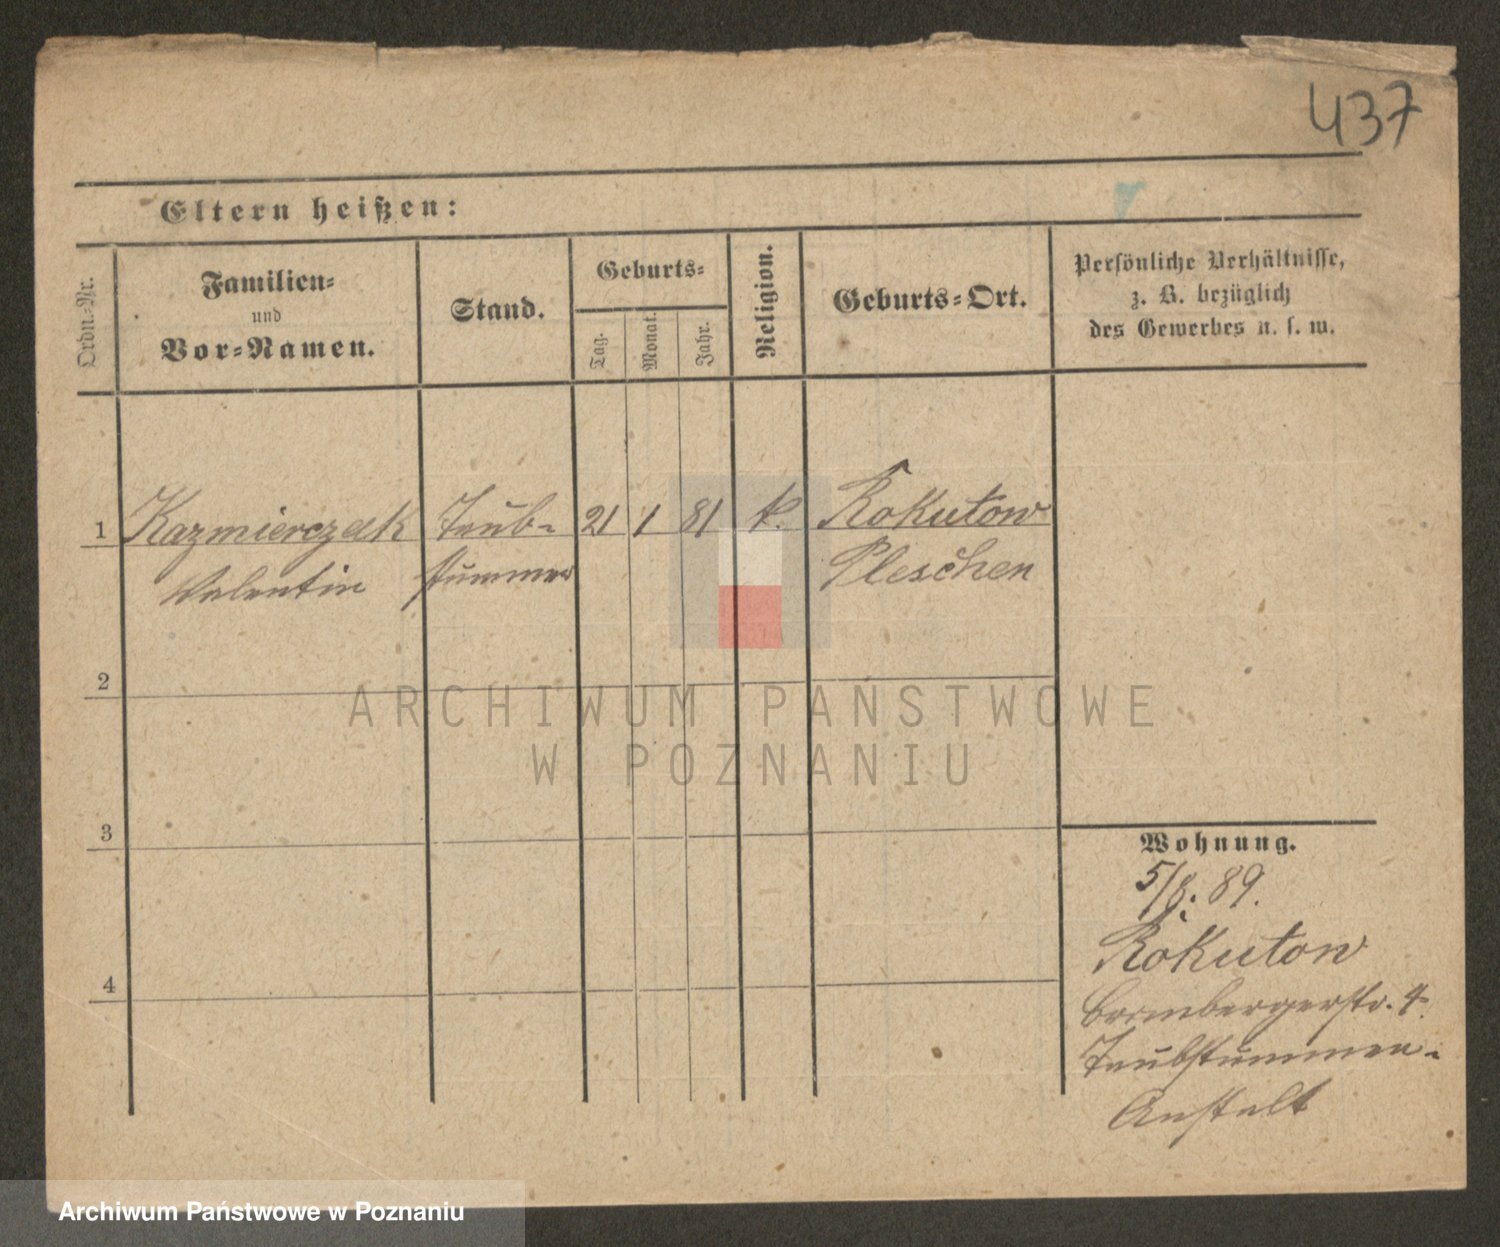 437
Eltern heißen:
Ordn.-Nr.
Familien-
und
Vor-Namen.
Stand.
Geburts-
Tag.
Monat.
Jahr.
Religion.
Geburts-Ort.
Persönliche Verhältnisse,
z. B. bezüglich
des Gewerbes u. s. w.
1 Kazmierczak Taub- 21 1 81 k. Rokutow
Valentin stummer Pleschen
2
3
4
Wohnung.
5/8. 89.
Rokutow
Brombergerstr. 4.
Taubstummen-
Anstalt
ARCHIWUM PAŃSTWOWE
W POZNANIU
Archiwum Państwowe w Poznaniu